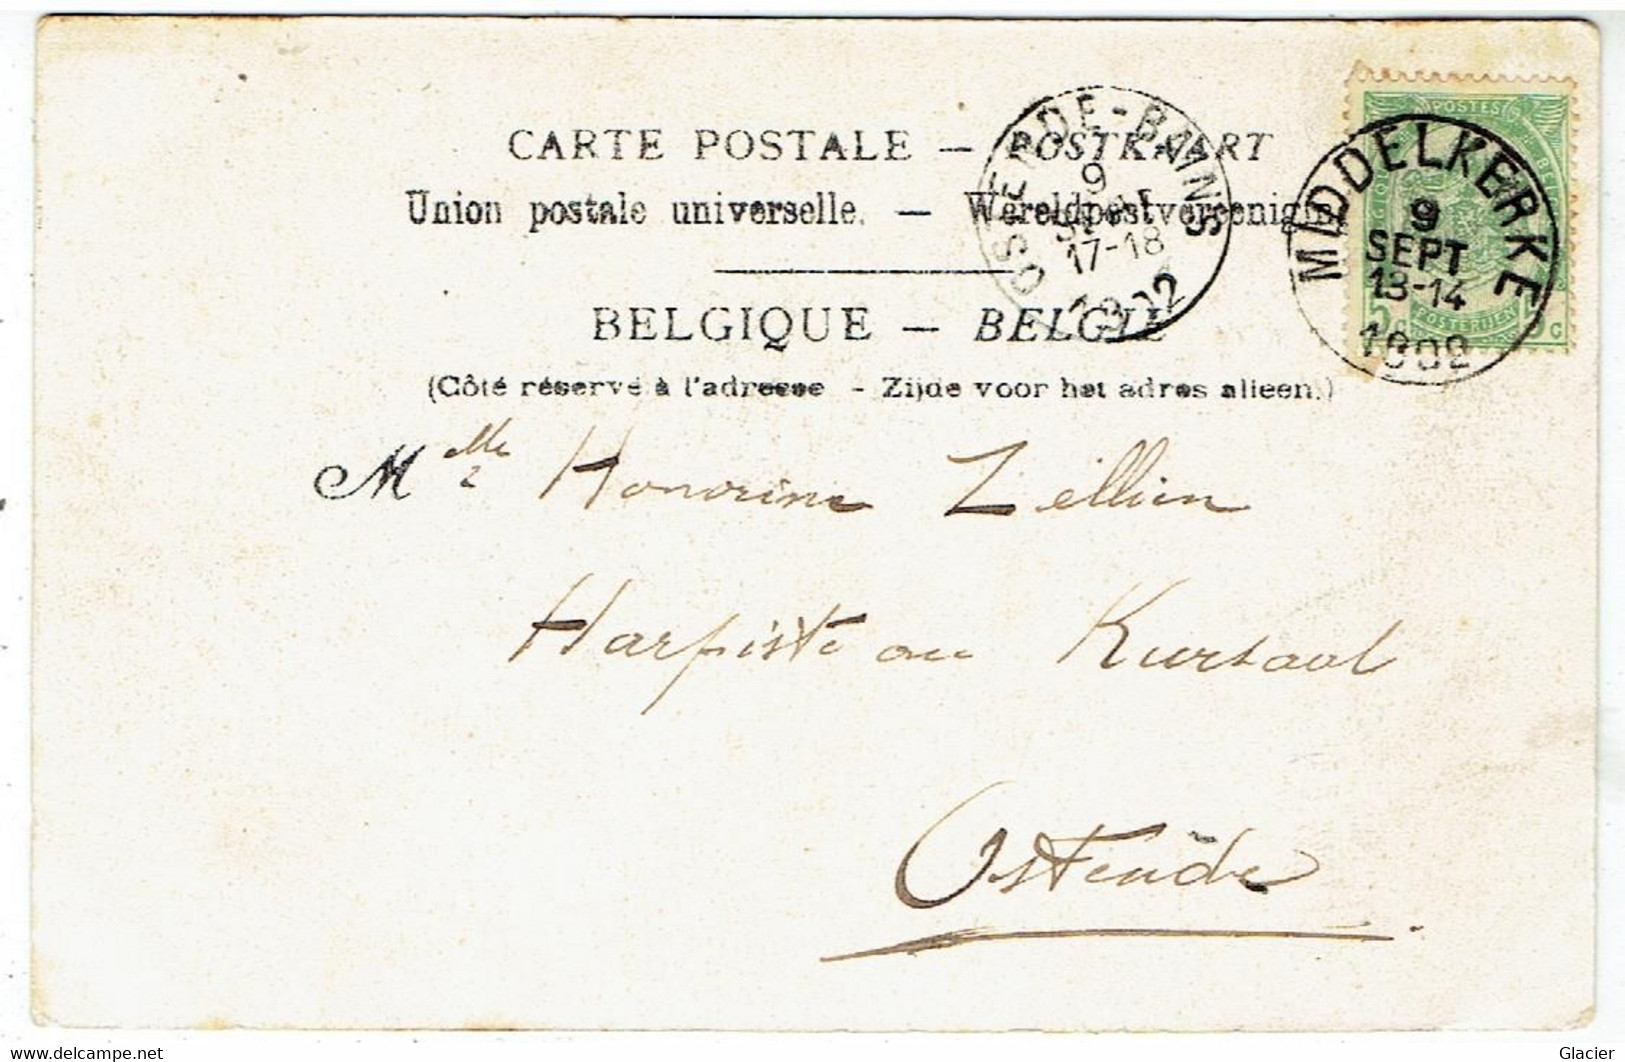 CARTE POSTALE — POSTKAART
Union postale universelle. — Wereldpostvereeniging
BELGIQUE — BELGIE
(Côté réservé à l'adresse - Zijde voor het adres alleen.)
OSTENDE-BAINS
9
SEPT
17-18
1902
POSTES
MIDDELKERKE
9
SEPT
13-14
1902
POSTERIJEN
Mlle Honorine Zellien
Harpiste au Kursaal
Ostende
delcampe.net
Glacier